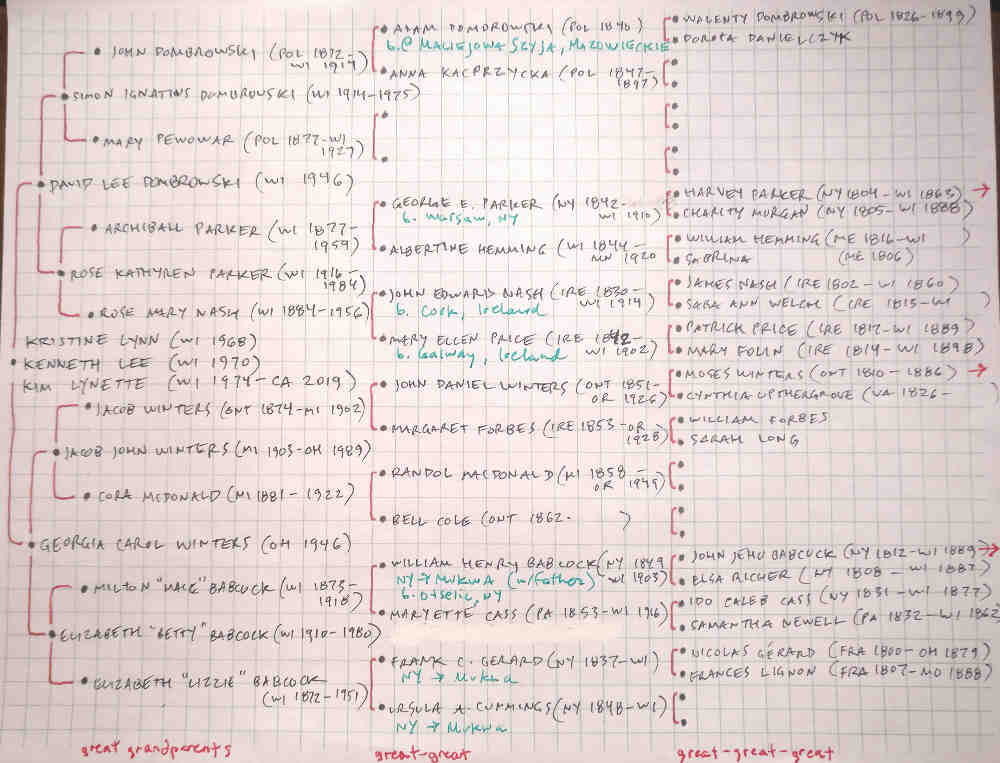 • JOHN DOMBROWSKI (POL 1872-
WI 1914)
• SIMON IGNATIUS DOMBROWSKI (WI 1914-1975)
• MARY PEWOWAR (POL 1877-WI
1927)
• DAVID LEE DOMBROWSKI (WI 1946)
• ARCHIBALL PARKER (WI 1877-
1959)
• ROSE KATHYREN PARKER (WI 1916-
1984)
• ROSE MARY NASH (WI 1884-1956)
KRISTINE LYNN (WI 1968)
• KENNETH LEE (WI 1970)
KIM LYNETTE (WI 1974-CA 2019)
• JACOB WINTERS (ONT 1874-MI 1902)
• JACOB JOHN WINTERS (MI 1903-OH 1989)
• CORA MCDONALD (MI 1881-1922)
• GEORGIA CAROL WINTERS (OH 1946)
• MILTON "MACK" BABCOCK (WI 1873-
1918)
• ELIZABETH "BETTY" BABCOCK (WI 1910-1980)
• ELIZABETH "LIZZIE" BABCOCK
(WI 1872-1951)
great grandparents
• ADAM DOMOROWSKI (POL 1840)
b.@ MALIEJOWA SZYJA, MAZOWIECKIE
• ANNA KACPRZYCKA (POL 1847-
1897)
•
•
• GEORGE E. PARKER (NY 1842-
WI 1910)
b. Warsaw, NY
• ALBERTINE HEMMING (WI 1844-
MN 1920
• JOHN EDWARD NASH (IRE 1830-
WI 1914)
b. Cork, Ireland
• MARY ELLEN PRICE (IRE 1842-
WI 1902)
b. Galway, Ireland
• JOHN DANIEL WINTERS (ONT 1851-
OR 1926)
• MARGARET FORBES (IRE 1853-OR
1928)
• RANDOL MACDONALD (MI 1858-
OR 1949)
• BELL COLE (ONT 1862- )
• WILLIAM HENRY BABCOCK (NY 1849
WI 1903)
NY → MUKWA (w/Father)
b. Otselic, NY
• MARYETTE CASS (PA 1853-WI 1916)
• FRANK C. GERARD (NY 1837-WI)
NY → Mukwa
• URSULA A. CUMMINGS (NY 1848-WI)
NY → Mukwa
great-great
• WALENTY DOMBROWSKI (POL 1826-1899)
• DOROTA DANIELCZYK
•
•
•
•
•
•
• HARVEY PARKER (NY 1804-WI 1863) →
• CHARITY MORGAN (NY 1805-WI 1888)
• WILLIAM HEMMING (ME 1816-WI )
• SABRINA (ME 1806)
• JAMES NASH (IRE 1802-WI 1860)
• SARA ANN WELCH (IRE 1815-WI )
• PATRICK PRICE (IRE 1817-WI 1889)
• MARY FOLIN (IRE 1814-WI 1898)
• MOSES WINTERS (ONT 1810-1886) →
• CYNTHIA UPTHERGROVE (VA 1826- )
• WILLIAM FORBES
• SARAH LONG
•
•
•
•
• JOHN JEHU BABCOCK (NY 1812-WI 1889) →
• ELSA RICHER (NY 1808-WI 1887)
• IDO CALEB CASS (NY 1831-WI 1877)
• SAMANTHA NEWELL (PA 1832-WI 1862
• NICOLAS GÉRARD (FRA 1800-OH 1879)
• FRANCES LIGNON (FRA 1807-MO 1888)
•
•
great-great-great